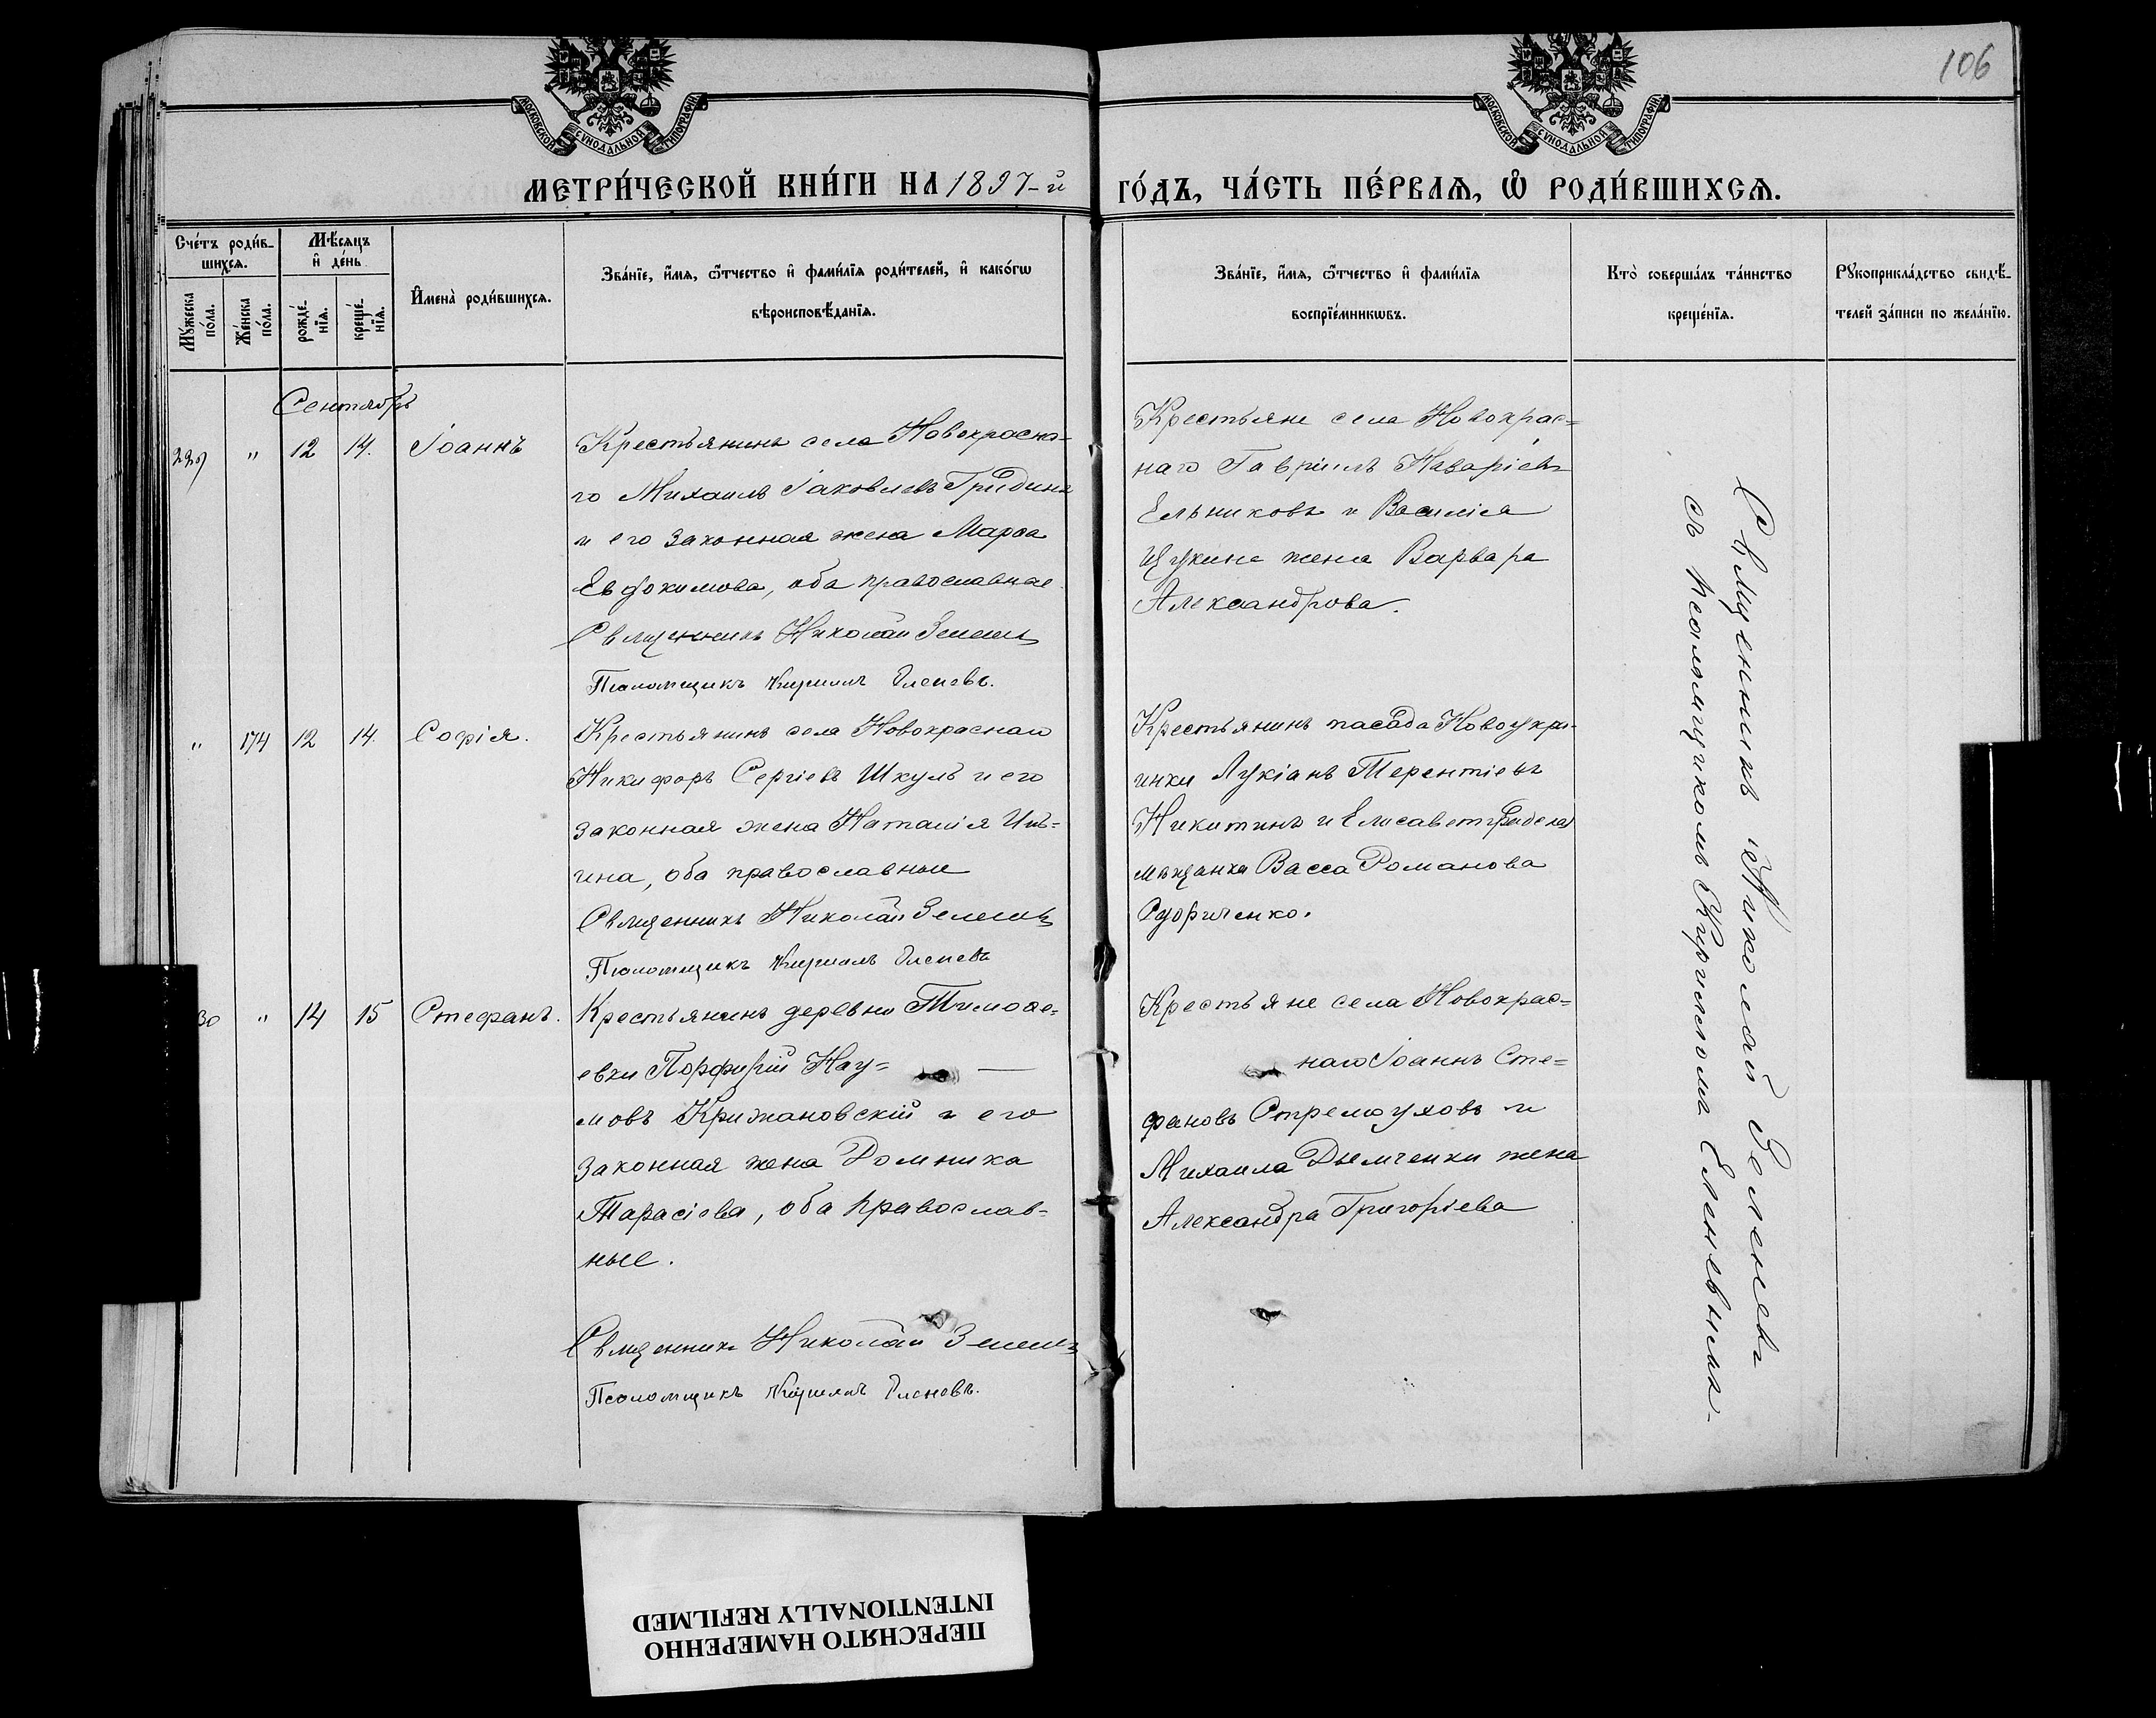 106
МОСКОВСКОЙ СУНОДАЛЬНОЙ ТИПОГРАФІИ
МОСКОВСКОЙ СУНОДАЛЬНОЙ ТИПОГРАФІИ
МЕТРИ́ЧЕСКОЙ КНИ́ГИ НА 1897-й
ГО́ДЪ, ЧА́СТЬ ПЕ́РВАѦ, Ѡ҆ РОДИ́ВШИХСѦ.
Сче́тъ роди́в-
шихсѧ.
Мꙋ́жеска
по́ла.
Же́нска
по́ла.
Мѣ́сѧцъ
и҆ де́нь
рожде́-
нїѧ.
креще́-
нїѧ.
И҆мена̀ роди́вшихсѧ.
Зва́нїе, и҆́мѧ, ѻ҆́тчество и҆ фами́лїѧ роди́телей, и҆ како́гѡ
вѣроисповѣ́данїѧ.
Зва́нїе, и҆́мѧ, ѻ҆́тчество и҆ фами́лїѧ
воспрїе́мникѡвъ.
Кто̀ соверша́лъ та́инство
креще́нїѧ.
Рꙋкоприкла́дство свидѣ́-
телей за́писи по жела́нїю.
Сентябрь
229 " 12 14. Іоаннъ
Крестьянинъ села Новокрасна-
го Михаилъ Іаковлевъ Гридинъ
и его законная жена Марѳа
Евдокимова, оба православные
Священникъ Николай Зеленевъ
Псаломщикъ Кириллъ Еленевъ.
Крестьяне села Новокрас=
наго Гавріилъ Назаріевъ
Ельниковъ и Василія
Щукина жена Варвара
Александрова.
" 174 12 14. Софія.
Крестьянинъ села Новокраснаго
Никифоръ Сергіевъ Шкулъ и его
законная жена Наталія Иль=
ина, оба православные
Священникъ Николай Зеленевъ
Псаломщикъ Кириллъ Еленевъ
Крестьянинъ пасада Новоукра-
инки Лукіанъ Терентіевъ
Никитинъ и Елисаветградская
мѣщанка Васса Романова
30 " 14 15 Стефанъ.
Крестьянинъ деревни Тимоѳе-
евки Порфирій Нау=
мовъ Крижановскій и его
законная жена Домника
Тарасіева, оба православ-
ные.
Священникъ Николай Зеленевъ
Псаломщикъ Кириллъ Еленевъ.
Крестьяне села Новокрас=
наго Іоаннъ Сте=
фановъ Стремоуховъ и
Михаила Дьемченки жена
Александра Григоріева
Священникъ Николай Зеленевъ
съ псаломщикомъ Кирилломъ Еленевымъ.
ПЕРЕСНЯТО НАМЕРЕННО
INTENTIONALLY REFILMED